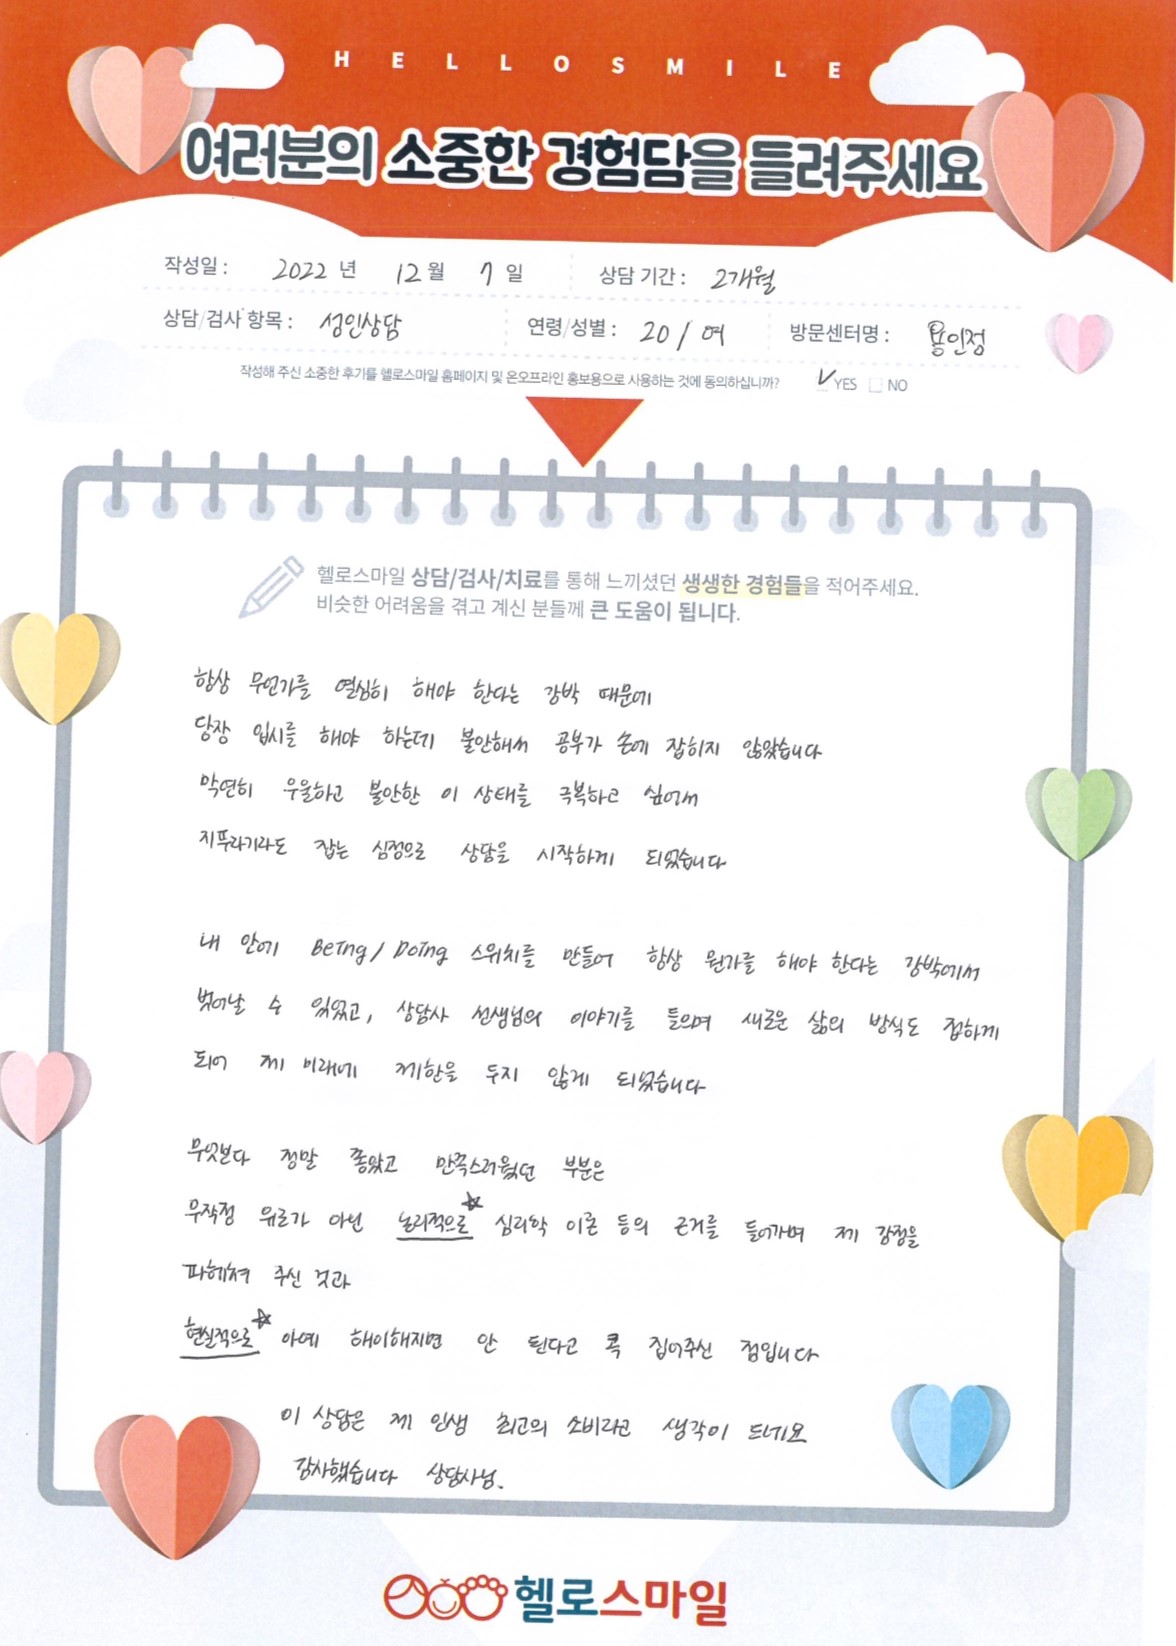 HELLOSMILE
여러분의 소중한 경험담을 들려주세요
작성일 : 2022 년 12 월 7 일 상담 기간 : 2개월
상담/검사 항목 : 성인상담 연령/성별 : 20 / 여 방문센터명 : 용인점
작성해 주신 소중한 후기를 헬로스마일 홈페이지 및 온오프라인 홍보용으로 사용하는 것에 동의하십니까? ✓YES □ NO
헬로스마일 상담/검사/치료를 통해 느끼셨던 생생한 경험들을 적어주세요.
비슷한 어려움을 겪고 계신 분들께 큰 도움이 됩니다.
항상 무언가를 열심히 해야 한다는 강박 때문에
당장 입시를 해야 하는데 불안해서 공부가 손에 잡히지 않았습니다
막연히 우울하고 불안한 이 상태를 극복하고 싶어서
지푸라기라도 잡는 심정으로 상담을 시작하게 되었습니다
내 안에 Being/Doing 스위치를 만들어 항상 뭔가를 해야 한다는 강박에서
벗어날 수 있었고, 상담사 선생님의 이야기를 들으며 새로운 삶의 방식도 접하게
되어 제 미래에 제한을 두지 않게 되었습니다
무엇보다 정말 좋았고 만족스러웠던 부분은
무작정 위로가 아닌 논리적으로☆ 심리학 이론 등의 근거를 들어가며 제 감정을
파헤쳐 주신 것과
현실적으로☆ 아예 해이해지면 안 된다고 콕 집어주신 점입니다
이 상담은 제 인생 최고의 소비라고 생각이 드네요
감사했습니다 상담사님.
헬로스마일